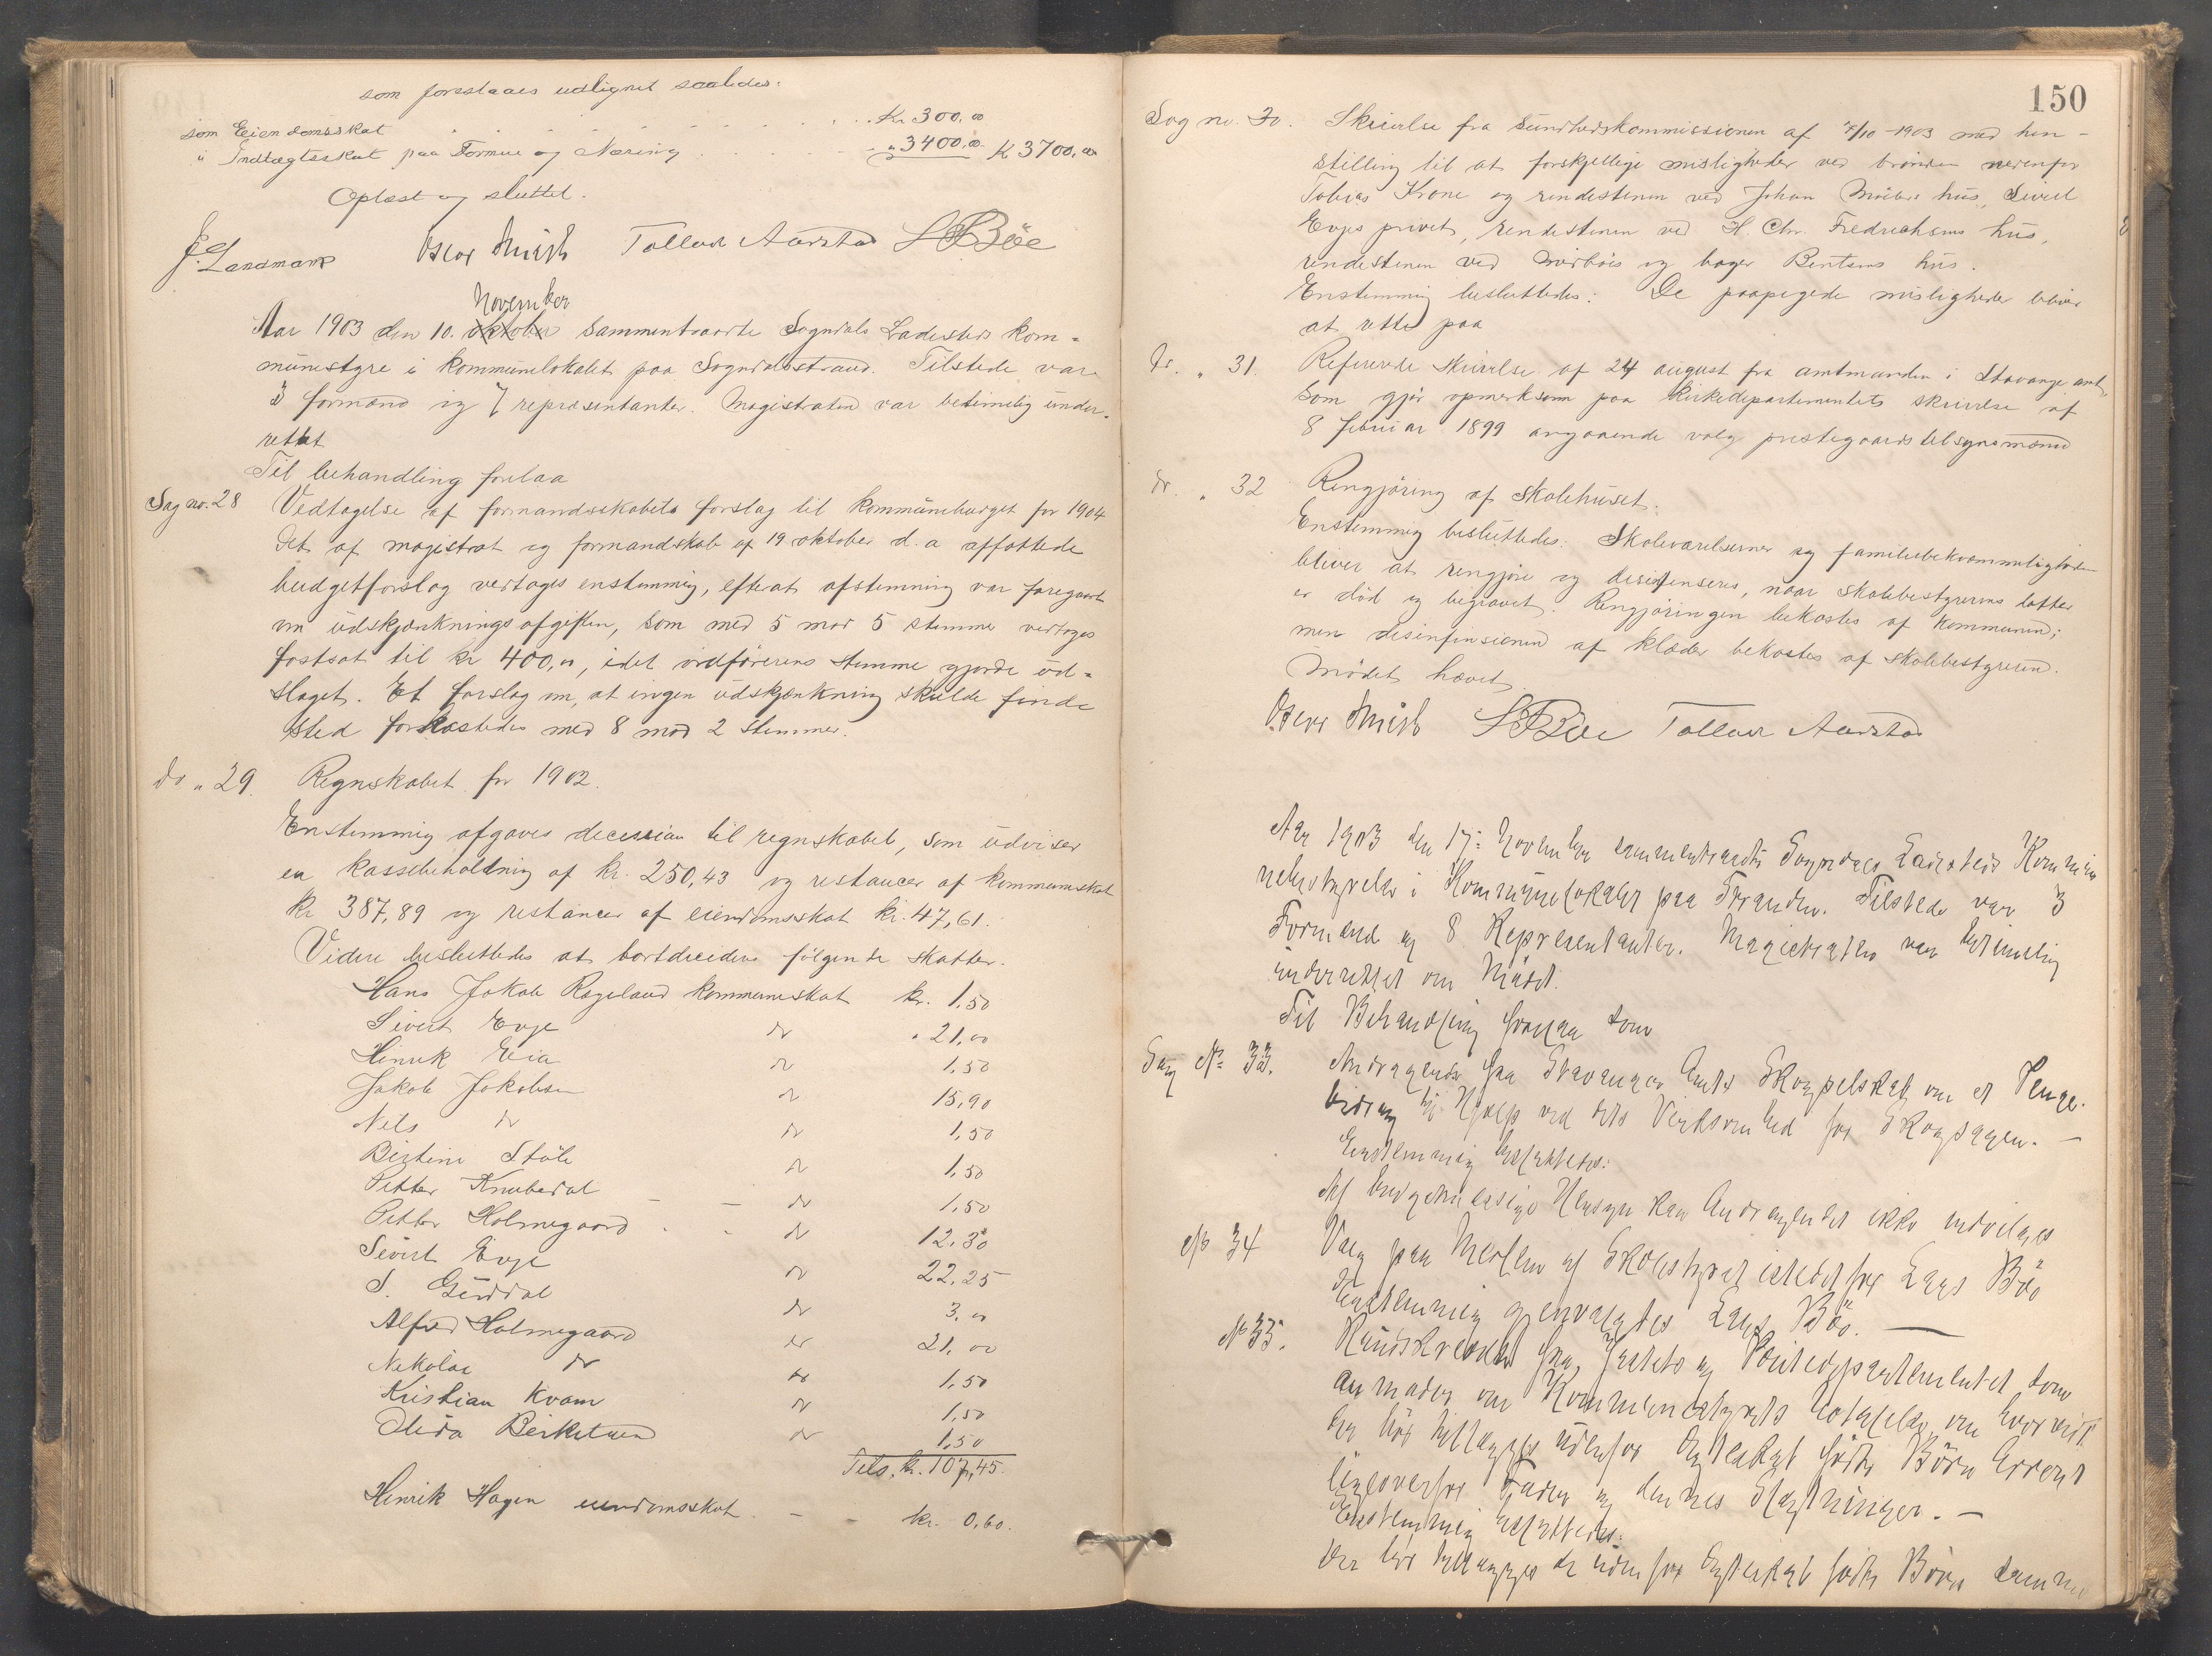 som foreslaaes udlignet saaledes:
som Eiendomsskat . . . . . . . . Kr 300,00
" Indtægtsskat paa Formue og Næring . . . . " 3400,00 K 3700,00
Oplæst og sluttet.
J. Landmark Oscar Smith Tollak Aarstad L Bøe
November
Aar 1903 den 10. oktober sammentraadte Sogndals Ladesteds kom-
munestyre i kommunelokalet paa Sogndalsstrand. Tilstede var
3 formænd og 7 repræsentanter. Magistraten var betimelig under-
rettet
Til behandling forelaa
Sag no. 28 Vedtagelse af formandsskabets forslag til kommunebudget for 1904
Det af magistrat og formandskab af 19 oktober d. a affattede
budgetforslag vedtages enstemmig, efterat afstemning var foregaaet
om udskjænkningsafgiften, som med 5 mod 5 stemmer vedtoges
fastsat til kr 400,00, idet ordførerens stemme gjorde ud-
slaget. Et forslag om, at ingen udskjænkning skulde finde
sted forkastedes med 8 mod 2 stemmer.
do " 29. Regnskabet for 1902.
Enstemmig afgaves decission til regnskabet, som udviser
en kassebeholdning af kr. 250,43 og restancer af kommuneskat
kr 387,89 og restancer af eiendomsskat kr. 47,61.
Videre besluttedes at bortdecidere følgende skatter.
Hans Jakob Rægeland kommuneskat kr. 1,50
Sivert Evje do " 21,00
Hinrik Eia do 1,50
Jakob Jakobsen do 15,90
Nils do do 1,50
Støle do 1,50
Petter Knubedal - - do 1,50
Petter Holmegaard . - do 12,30
Sivert Evje do 22,25
S. Gurdal do 3,00
Alfred Holmegaard do 21,00
Nikolai do do 1,50
Kristian Kvam do 1,50
do 1,50
Tils. kr. 107,45.
Henrik Hagen eiendomsskat - - kr. 0,60.
150
Sag no. 30. Skrivelse fra Sundhedskommissionen af 7/10-1903 med hen-
stilling til at forskjellige misligheder ved brønden nedenfor
Tobias Krone og rendestenen ved Johan hus, Sivert
Evjes privet, rendestenen ved H. Chr. Fredrichsens hus,
rendestenen ved og bager Bentsens hus.
Enstemmig besluttedes: De paapegede misligheder bliver
at rette paa
do. " 31. Refererede skrivelse af 24 august fra amtmanden i Stavanger amt,
som gjør opmerksom paa Kirkedepartementets skrivelse af
8 februar 1899 angaaende valg prestegaardstilsynsmænd
do. " 32 Rengjøring af skolehuset.
Enstemmig besluttedes: Skoleværelserne og familiebekvemmeligheden
bliver at rengjøre og desinfenseres, naar skolebestyrerens datter
er død og begravet. Rengjøringen bekostes af kommunen;
men disinfinsionen af klæder bekostes af skolebestyreren.
Mødet hævet.
Oscar Smith L Bøe Tollak Aarstad
Aar 1903 den 17: November sammentraadte Sogndals Ladesteds Kommu
nebestyrelse i Kommunelokalet paa Stranden. Tilstede var 3
Formænd og 8 Repræsentanter. Magistraten var betimelig
underrettet om Mødet.
Til Behandling forelaa som
Sag No 33. Andragende fra Stavanger Amts Skogselskab om et Penge-
bidrag til Hjælp ved dets Virksomhed for Skogsagen. —
Enstemmig besluttedes:
Af budgetmæssige Hensyn kan Andragendet ikke indvilges
No 34 Valg paa Medlem af Skolestyret istedetfor Lars Bøe
Enstemmig gjenvalgtes Lars Bøe. —
No 35. Rundskrivelse fra Justits og Politidepartementet som
anmoder om Kommunestyrets Udtalelse om hvorvidt
der bør tillægges udenfor Ægteskab fødte Børn Arveret
ligeoverfor Fader og dennes Slægtninger. —
Enstemmig besluttedes:
Der bør tillægges de udenfor Ægteskab fødte Børn samme